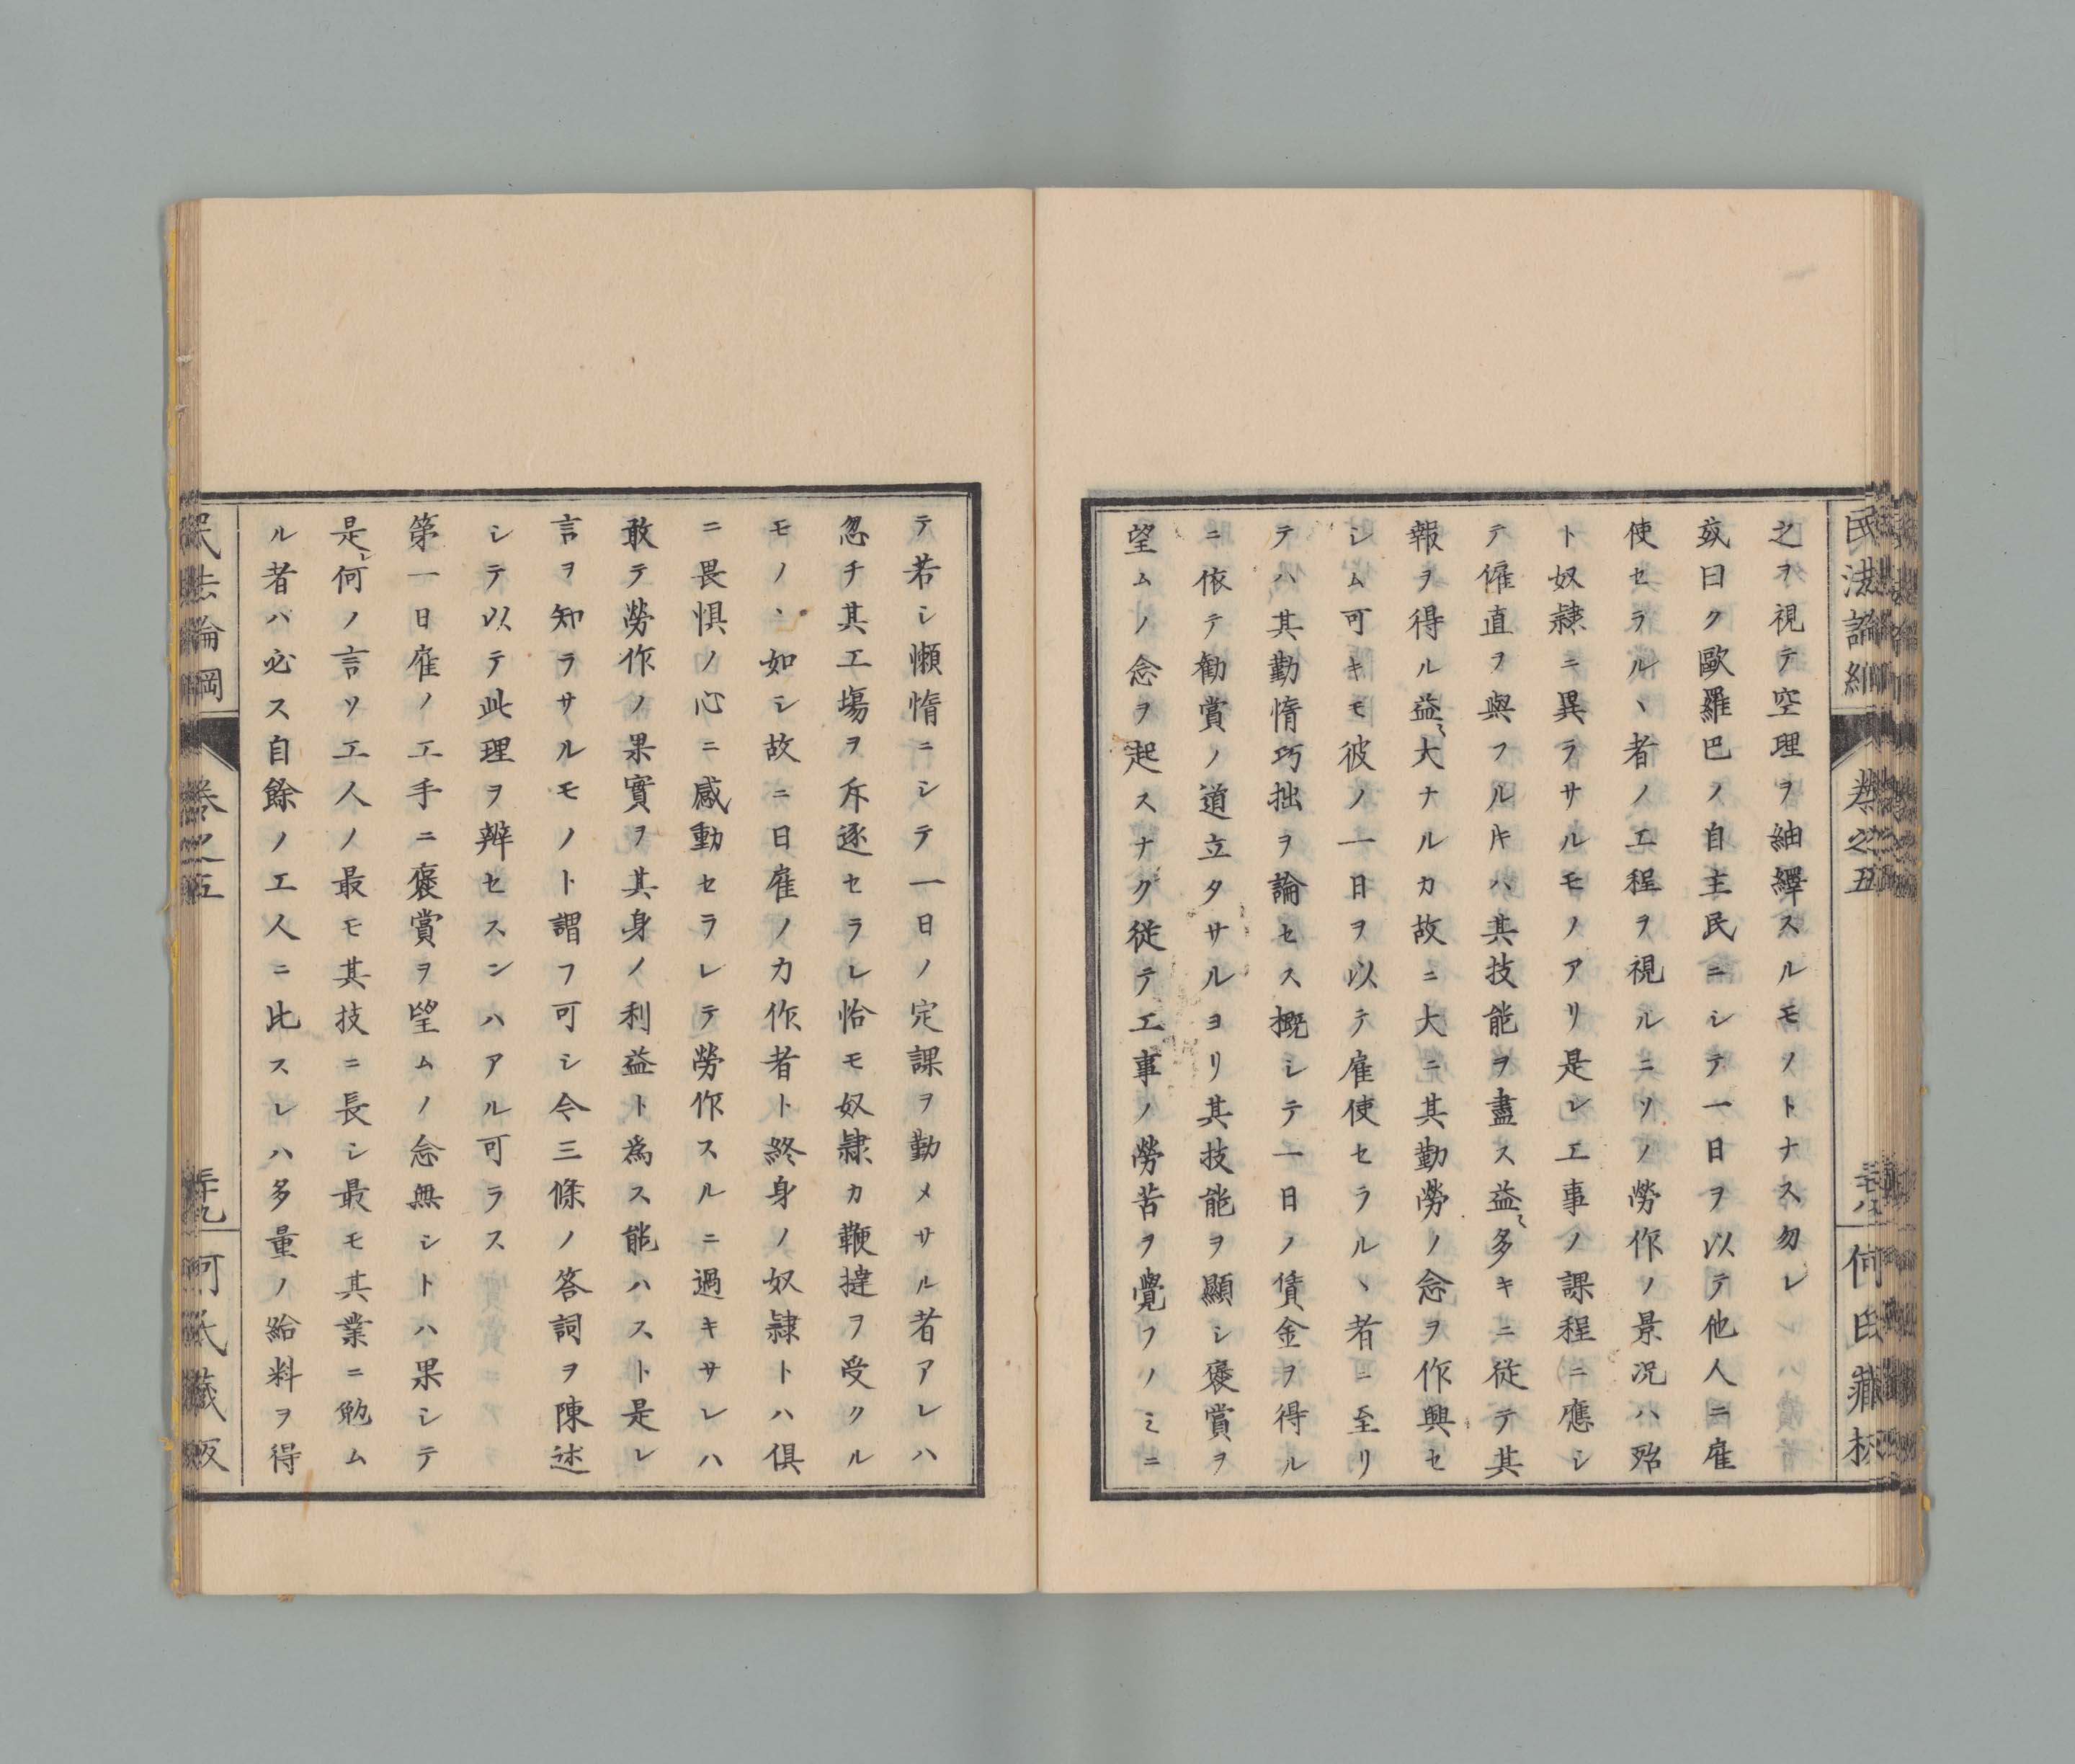 民法論綱
卷之五
何氏藏板
之ヲ視テ空理ヲ紬繹スルモノトナス勿レ
玆曰ク歐羅巴ノ自主民ニシテ一日ヲ以テ他人ニ雇
使セラルヽ者ノ工程ヲ視ルニソノ勞作ノ景况ハ殆
ト奴隷ニ異ラサルモノアリ是レ工事ノ課程ニ應シ
テ僱直ヲ與フル𪜈ハ其技能ヲ盡ス益〻多キニ從テ其
報ヲ得ル益〻大ナルカ故ニ大ニ其勤勞ノ念ヲ作興セ
シム可キモ彼ノ一日ヲ以テ雇使セラルヽ者ニ至リ
テハ其勤惰巧拙ヲ論セス概シテ一日ノ賃金ヲ得ル
ニ依テ勸賞ノ道立タサルヨリ其技能ヲ顯シ褒賞ヲ
望ムノ念ヲ起スナク從テ工事ノ勞苦ヲ覺フノミニ
テ若シ懶惰ニシテ一日ノ定課ヲ勤メサル者アレハ
忽チ其工塲ヲ斥逐セラレ恰モ奴隷カ鞭撻ヲ受クル
モノヽ如シ故ニ日雇ノ力作者ト終身ノ奴隷トハ俱
ニ畏惧ノ心ニ感動セラレテ勞作スルニ過キサレハ
敢テ勞作ノ果實ヲ其身ノ利益ト爲ス能ハスト是レ
言ヲ知ラサルモノト謂フ可シ今三條ノ答詞ヲ陳述
シテ以テ此理ヲ辨セスンハアル可ラス
第一日雇ノ工手ニ褒賞ヲ望ムノ念無シトハ果シテ
是レ何ノ言ソ工人ノ最モ其技ニ長シ最モ其業ニ勉ム
ル者バ必ス自餘ノ工人ニ比スレハ多量ノ給料ヲ得
民法論綱
卷之五
何氏藏版